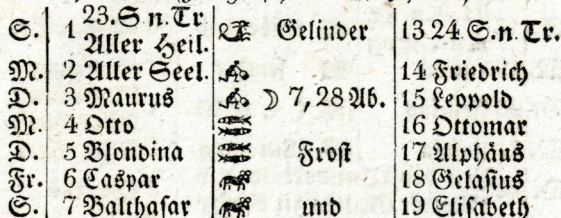 S. 1 23. S. n. Tr. Gelinder 13 24. S. n. Tr.
Aller Heil.
M. 2 Aller Seel. 14 Friedrich
D. 3 Maurus ☽ 7, 28 Ab. 15 Leopold
M. 4 Otto 16 Ottomar
D. 5 Blondina Frost 17 Alphäus
Fr. 6 Caspar 18 Gelasius
S. 7 Balthasar und 19 Elisabeth